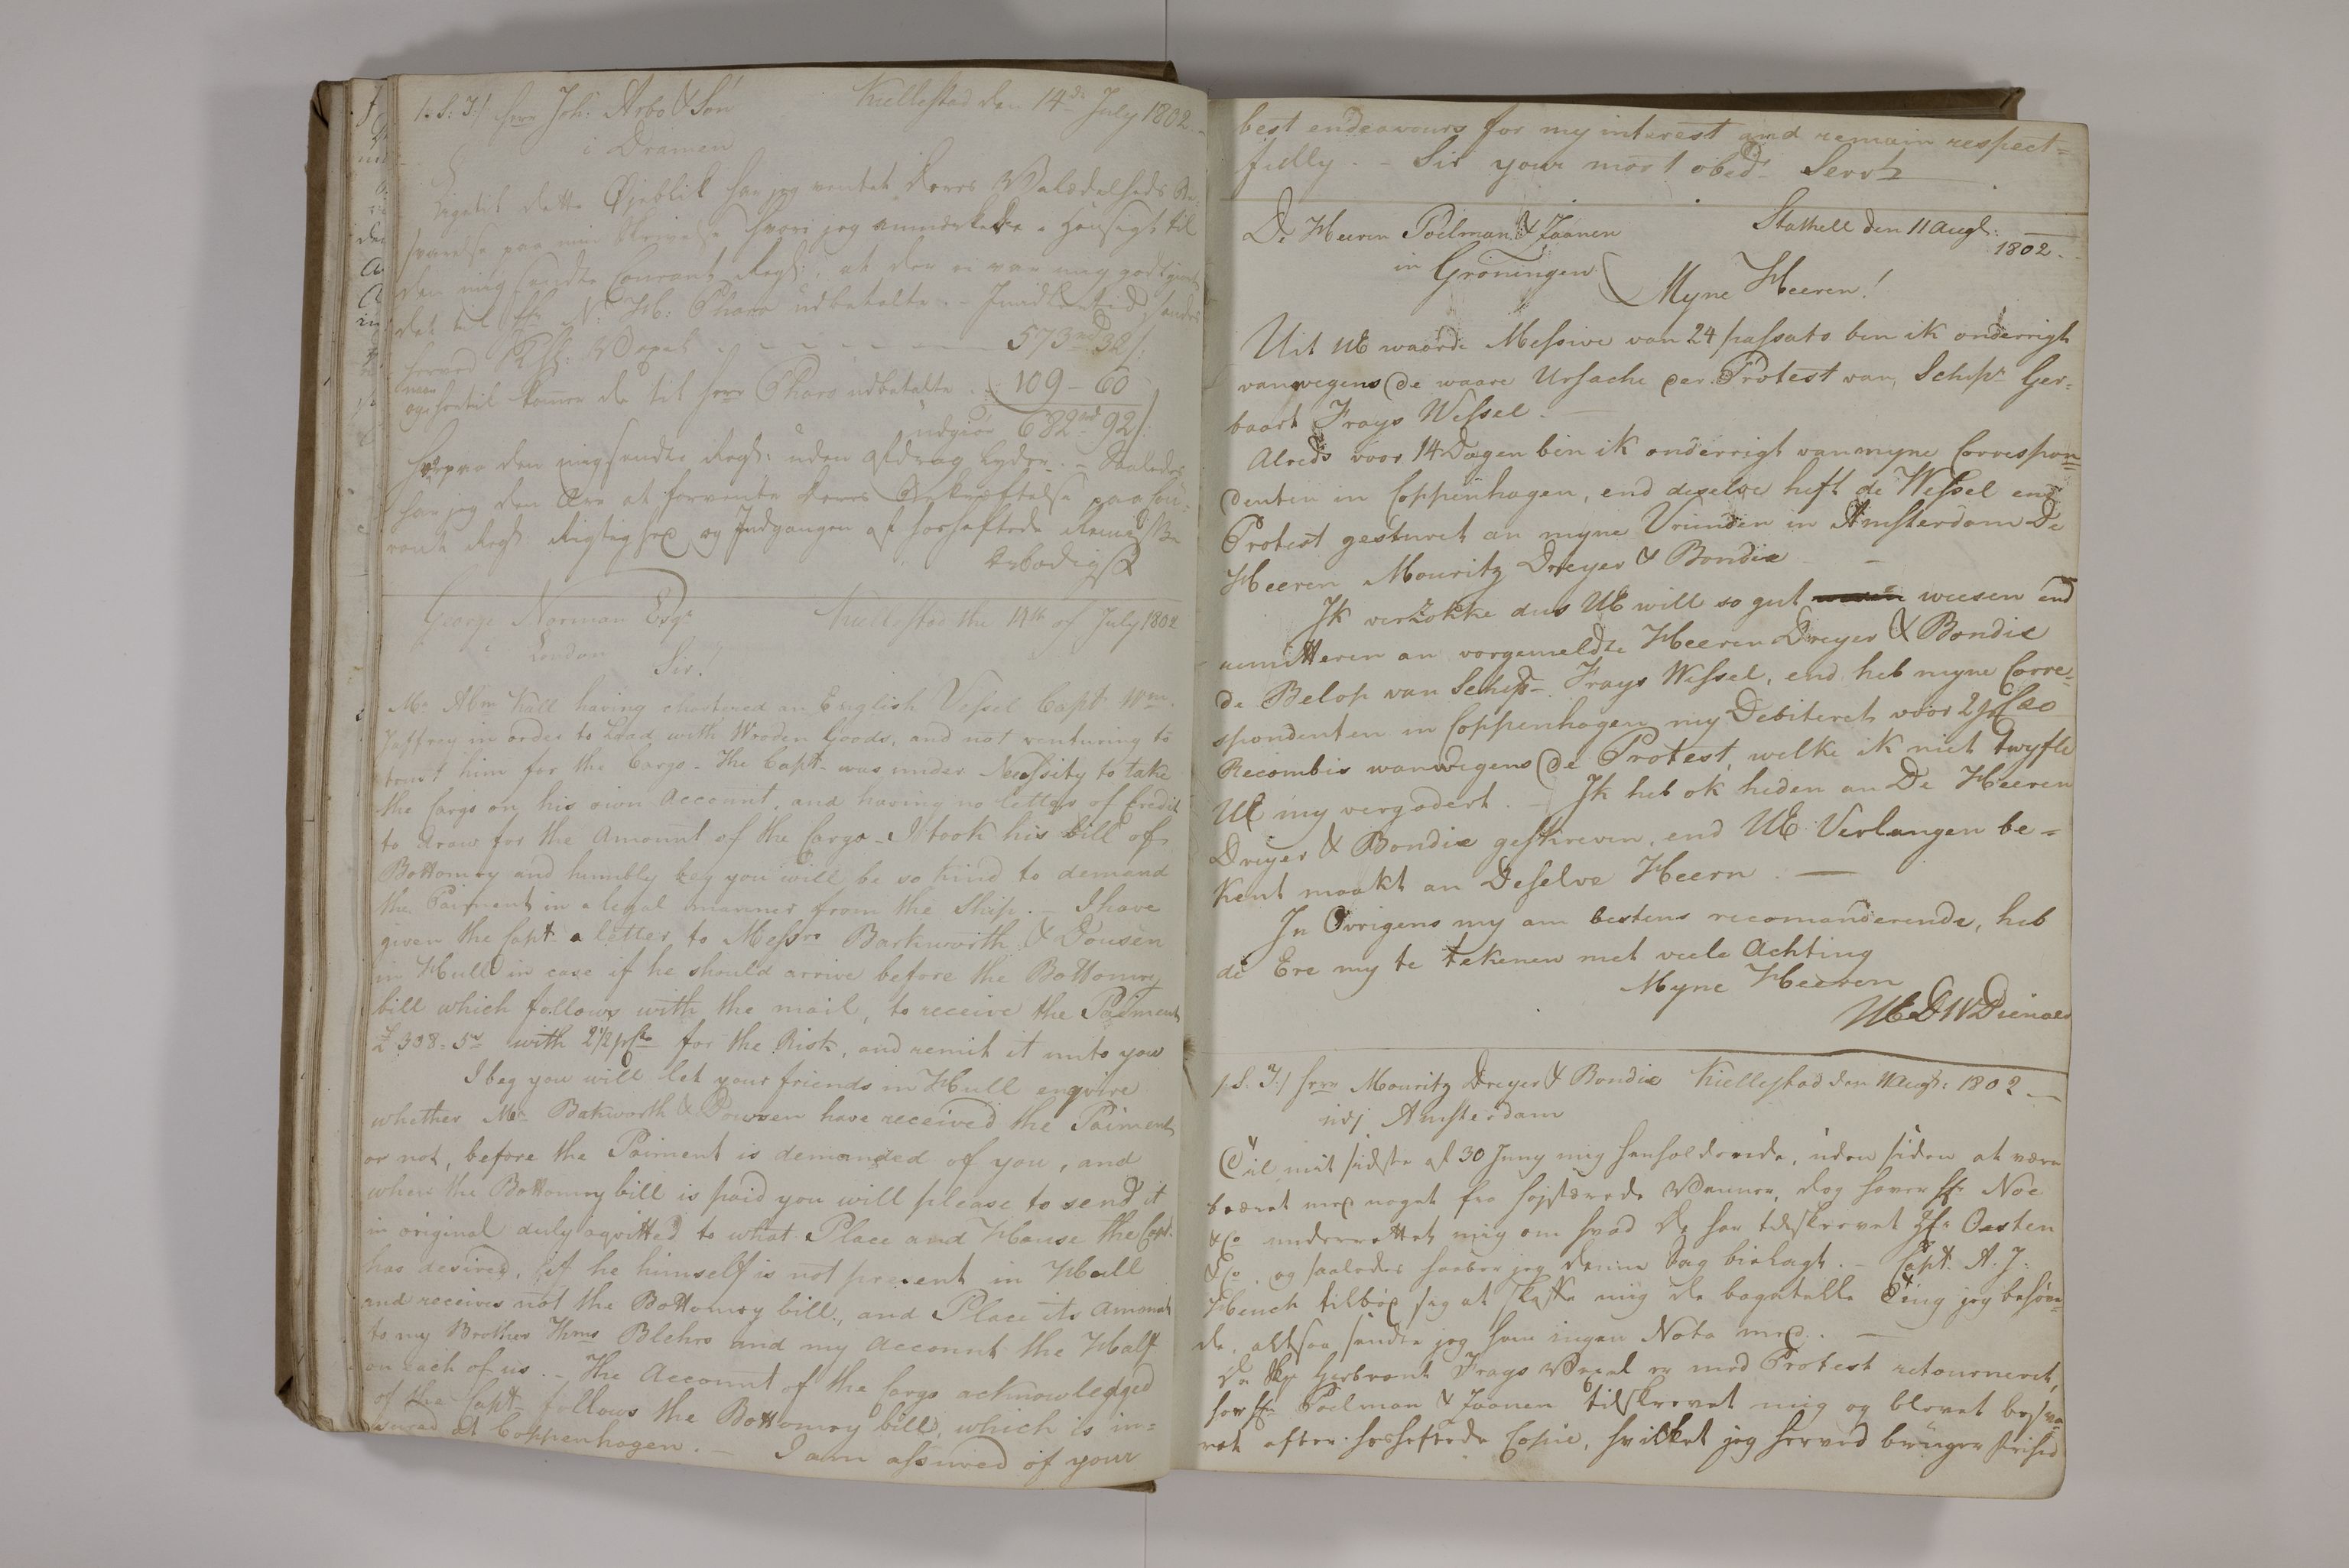 /: S: T:/ Herr Joh: Arbo & Søn Kiellestad den 14de July 1802
i Dramen
Ligetil dette Øjeblik har jeg ventet Deres Velædelheds Be-
svarelse paa min Skrivelse hvori jeg anmærkede
den mig sendte Courant Regn:, at der ei var mig godtgiort
det til Hr N: H: Pharo udbetalte. - Imidlertid sendes
herved Vexel 573rd 32/:
hertil kommer de til Herr Pharo udbetalte 109 - 60
udgiør 682rd 92/:
den mig sendte Regn: uden Afdrag lyder. - Saaledes
har jeg den Ære at forvente Deres Bekræftelse paa Cou-
rant Regn: Rigtighed og Indgangen af hoshæftede
Ærbødigst
George Norman Esqr Kiellestad the 14th of July 1802
London
Sir!
Mr Abm Kall having chartered an English Vessel Capt Wm
Jaffrey in order to Load with Wooden Goods, and not venturing to
trust him for the Cargo - The Capt was under Necessity to take
the Cargo on his own Account, and having no letters of Credit
to draw for the Amount of the Cargo - I took his bill of
Bottomry and humbly beg you will be so kind to demand
the Paiment in a legal manner from the Ship. - I have
given the Capt a letter to Messrs Barkworth & Dousen
in Hull in case if he should arrive before the Bottomry
bill which follows with the mail, to receive the Paiment
£ 338 - 5 with 2 1/2 pCto for the Risk, and remit it unto you
I beg you will let your friends in Hull enqvire
whether Mr Bakworth & Dowsen have received the Paiment
or not, before the Paiment is demanded of you, and
when the Bottomry bill is paid you will please to send it
in original duly aqvitted to what Place and House the Capt
has desired, if he himself is not present in Hull
and receives not the Bottomry bill, and Place its Amount
to my Brother Thms Blehrs and my Account the Half
on each of us. - The Account of the Cargo acknowledged
of the Capt follows the Bottomry bill, which is in=
sured at Coppenhagen. - I am assured of your
best endeavours for my interest and remain respect=
fully. - Sir your most obedt Servt
De Heeren Poelman & Jaanen Stathell den 11 Augt:
in Groningen 1802.
Myne Heeren!
Uit UE waarde Messive van 24 passato ben ik onderrigt
vanwegens de waare Ursache der Protest van Schipr Ger=
baart Frays Wessel. -
Alreds voor 14 Dagen bin ik onderrigt van myne Correspon=
denten in Coppenhagen, end deselve heft de Wessel end
Protest gesturet an myne Vrunden in Amsterdam De
Heeren Mouritz Dreyer & Bondix -
Ik verzokke dus UE will so gut weesen end
remitteren an vorgemeldte Heeren Dreyer & Bondix
de Belop van Schipr Frays Wessel, end heb myne Corre=
spondenten in Coppenhagen my Debiteret voor 2 pCto
Recombis vanwegens de Protest, welke ik niet twyfle
UE my vergodert. - Ik heb ok heden an De Heeren
Dreyer & Bondix geskreven, end UE Verlangen be=
kent maakt an Deselve Heern. -
In Ovrigens my am bestens recomanderende, heb
de Ere my te tekenen met veele Achting
Myne Heeren
UE D W Dienaer
/: S: T:/ Herrn Mouritz Dreyer & Bondix Kiellestad den 11 Augt: 1802 -
udj Amsterdam
Til mit sidste af 30 Juny mig henholdende, uden siden at være
beæret med noget fra højstærede Venner, dog haver Hr Noe
& Co underrettet mig om hvad De har tilskrevet Hr Oasten
& Co, og saaledes haaber jeg denne Sag bielagt. - Capt. A. J.
Hench tilbød sig at skaffe mig de bagatelle Ting jeg behøve=
de, altsaa sendte jeg ham ingen Nota med. -
Da Skr Gerbrant Frays Vexel er med Protest retourneret,
har Hr Poelman & Jaanen tilskrevet mig og blevet besva=
ret efter hoshæftede Copie, hvilket jeg herved bruger Frihed